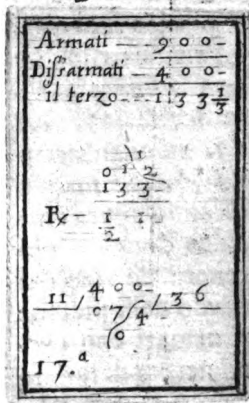 Armati — 9 0 0 —
Disarmati — 4 0 0 —
il terzo — 1 3 3 1/3
1
0 1 2
1 3 3 —
R — 1 1
2
4 0 0 —
11 / 0 7 4 / 3 6
0
17.ª